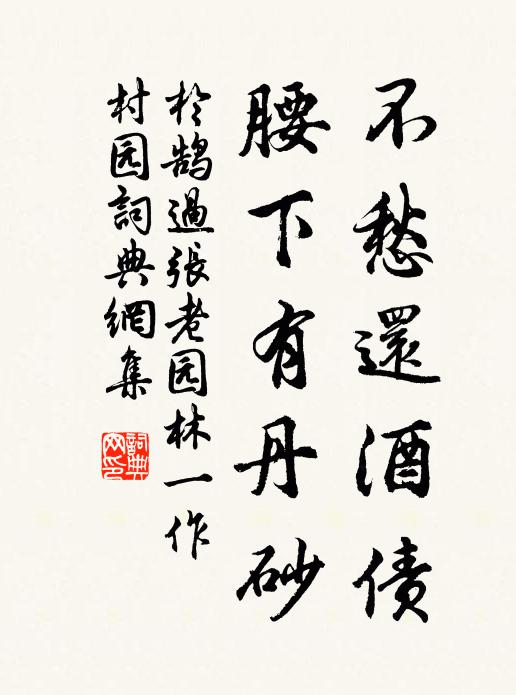 不愁還酒債
腰下有丹砂
於鹄過張老园林一作
村园詞典網集
詞典网印